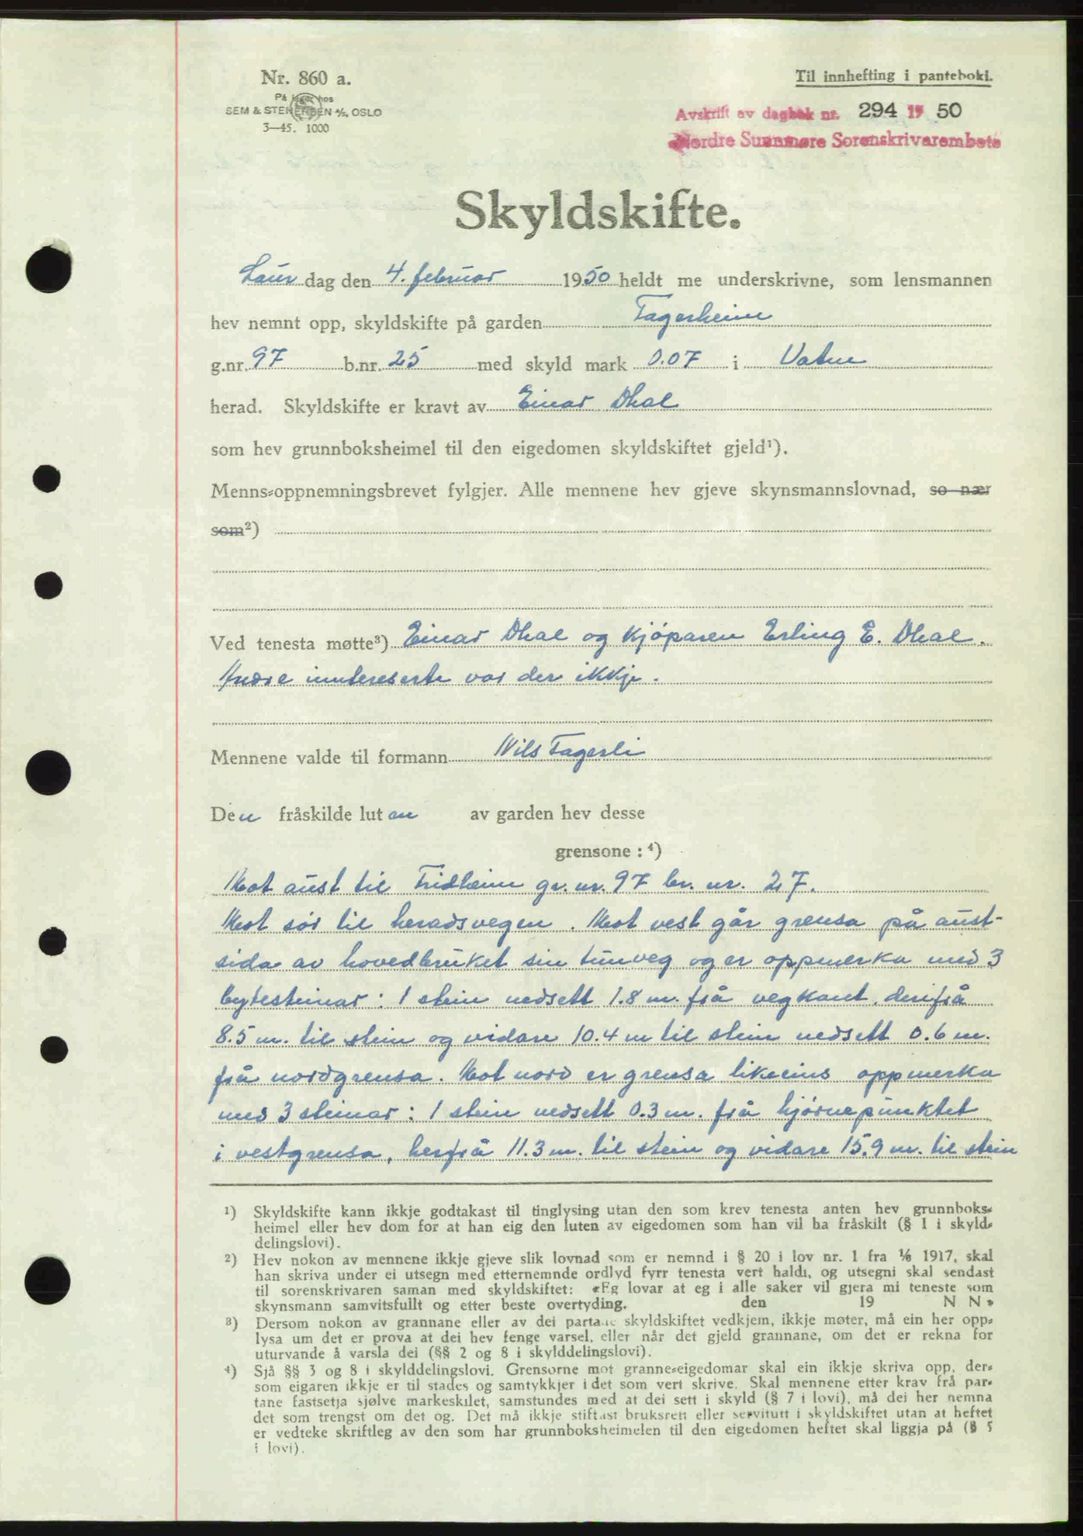 Nr. 860 a.
På lager hos
SEM & STENERSEN A/S, OSLO
3—45. 1000
Til innhefting i panteboki.
Avskrift av dagbok nr. 294 19 50
Nordre Sunnmøre Sorenskrivarembete
Skyldskifte.
Laur dag den 4. februar 1950 heldt me underskrivne, som lensmannen
hev nemnt opp, skyldskifte på garden Fagerheim
g.nr. 97 b.nr. 25 med skyld mark 0.07 i Vatne
herad. Skyldskifte er kravt av Einar Dhal
som hev grunnboksheimel til den eigedomen skyldskiftet gjeld¹).
Menns-oppnemningsbrevet fylgjer. Alle mennene hev gjeve skynsmannslovnad, so nær
som²)
Ved tenesta møtte³) Einar Dhal og kjøparen Erling E. Dhal.
Andre inntereserte var der ikkje.
Mennene valde til formann Nils Fagerli
Den fråskilde lutan av garden hev desse
grensone : ⁴)
Mot aust til Fridheim gr. nr. 97 br. nr. 27.
Mot sør til heradsvegen. Mot vest går grensa på aust-
sida av hovedbruket sin tunveg og er oppmerka med 3
bytesteinar: 1 stein nedsett 1.8 m. frå vegkant, derifrå
8.5 m. til stein og vidare 10.4 m til stein nedsett 0.6 m.
frå nordgrensa. Mot nord er grensa likeeins oppmerka
med 3 steinar: 1 stein nedsett 0.3 m. frå hjørnepunktet
i vestgrensa, herfrå 11.3 m. til stein og vidare 15.9 m. til stein
¹) Skyldskifte kann ikkje godtakast til tinglysing utan den som krev tenesta anten hev grunnboks-
heimel eller hev dom for at han eig den luten av eigedomen som han vil ha fråskilt (§ 1 i skyld-
delingslovi).
²) Hev nokon av mennene ikkje gjeve slik lovnad som er nemnd i § 20 i lov nr. 1 fra 1/6 1917, skal
han skriva under ei utsegn med etternemnde ordlyd fyrr tenesta vert haldi, og utsegni skal sendast
til sorenskrivaren saman med skyldskiftet: «Eg lovar at eg i alle saker vil gjera mi teneste som
skynsmann samvitsfullt og etter beste overtyding. den 19 N N»
³) Dersom nokon av grannane eller av dei partane skyldskiftet vedkjem, ikkje møter, må ein her opp-
lysa um det er prova at dei hev fenge varsel, eller når det gjeld grannane, om det er rekna for
uturvande å varsla dei (§§ 2 og 8 i skylddelingslovi).
⁴) Sjå §§ 3 og 8 i skylddelingslovi. Grensorne mot granne-eigedomar skal ein ikkje skriva opp, der-
som eigaren ikkje er til stades og samtykkjer i det som vert skrive. Skal mennene etter krav frå par-
tane fastsetja sjølve markeskilet, samstundes med at dei sett i skyld (§ 7 i lovi), må dei her nemna
det som trengst om det og. Det må ikkje stiftast bruksrett eller servitutt i skyldskiftet utan at heftet
er vedteke skriftleg av den som har grunnboksheimelen til den eigedomen heftet skal liggja på (§ 5
i lovi).